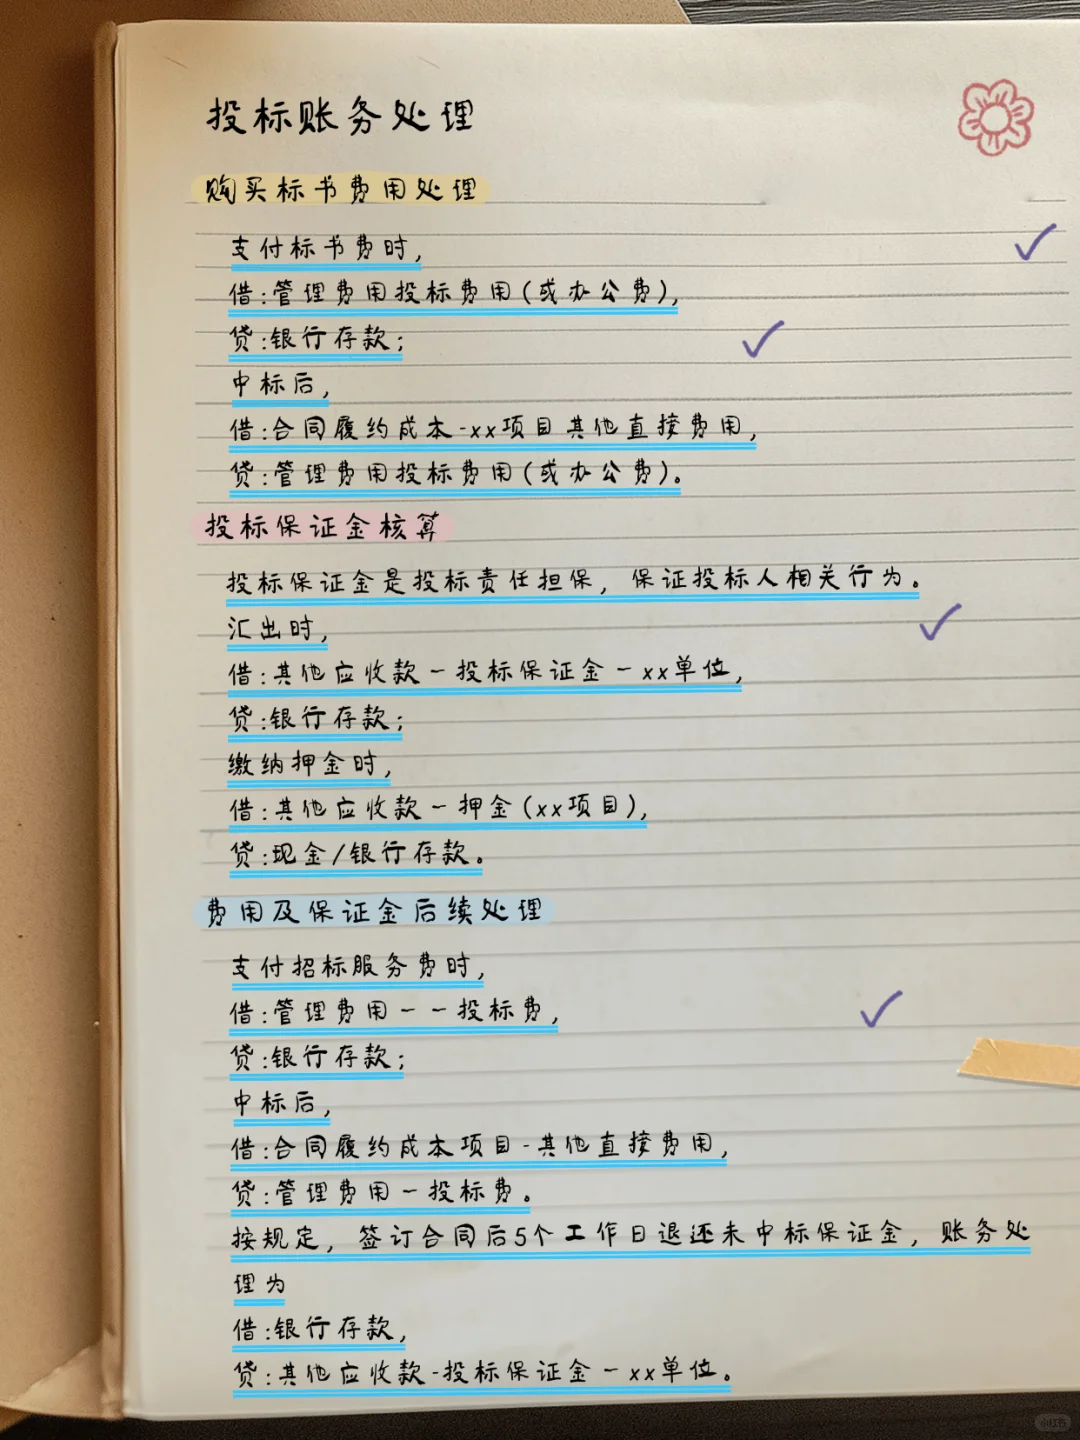 投标账务处理
购买标书费用处理
支付标书费时,
借:管理费用投标费用(或办公费),
贷:银行存款;
中标后,
借:合同履约成本-xx项目其他直接费用,
贷:管理费用投标费用(或办公费)。
投标保证金核算
投标保证金是投标责任担保, 保证投标人相关行为。
汇出时,
借:其他应收款-投标保证金-xx单位,
贷:银行存款;
缴纳押金时,
借:其他应收款-押金(xx项目),
贷:现金/银行存款。
费用及保证金后续处理
支付招标服务费时,
借:管理费用--投标费,
贷:银行存款;
中标后,
借:合同履约成本项目-其他直接费用,
贷:管理费用-投标费。
按规定, 签订合同后5个工作日退还未中标保证金, 账务处
理为
借:银行存款,
贷:其他应收款-投标保证金-xx单位。
小红书